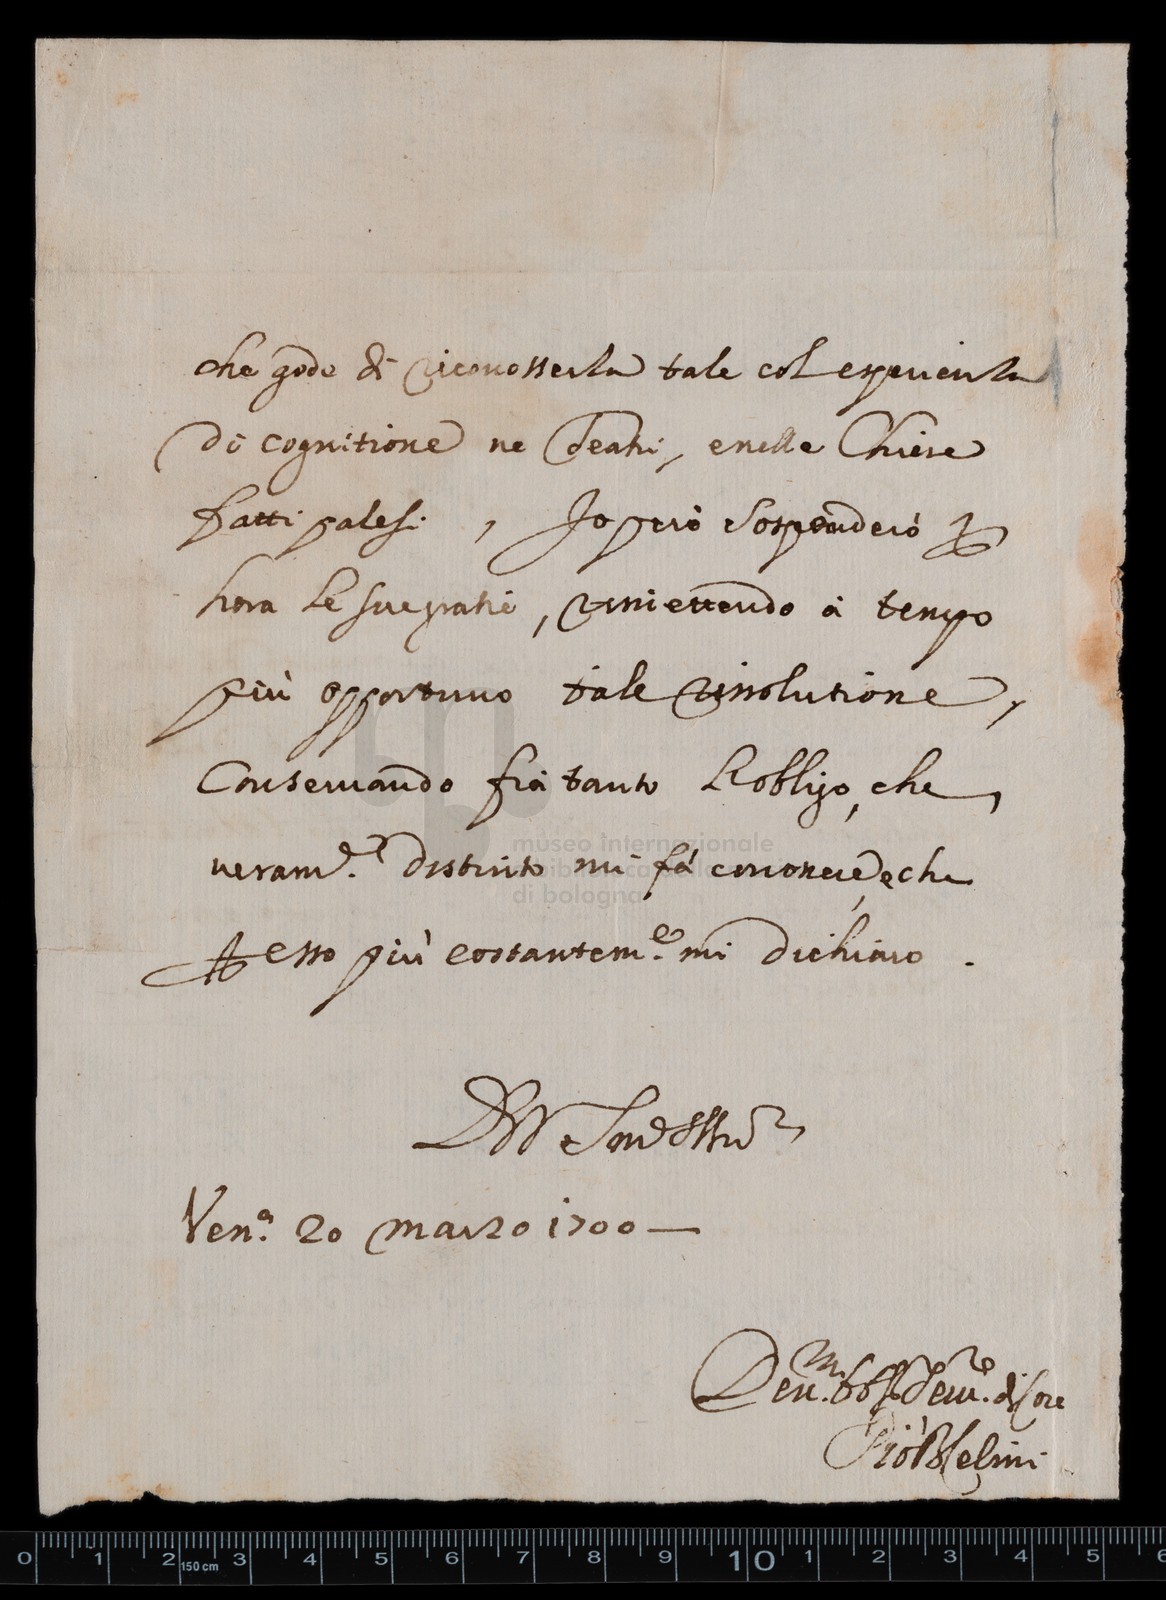 che gode di riconosserla tale col esperienza
di cognitione ne Teatri, e nelle Chiese
fatti palesi, Io però sospenderò per
hora le sue gratie, rimettendo à tempo
più opportuno tale rissolutione,
Conservando frà tanto l'obbligo, che
veram.e distinto mi fà conoscere, e che
per esso più costantem.e mi dichiaro.
Ven.a 20 marzo 1700
museo internazionale
e biblioteca della
di bologna
0 1 2 150 cm 3 4 5 6 7 8 9 10 1 2 3 4 5 6